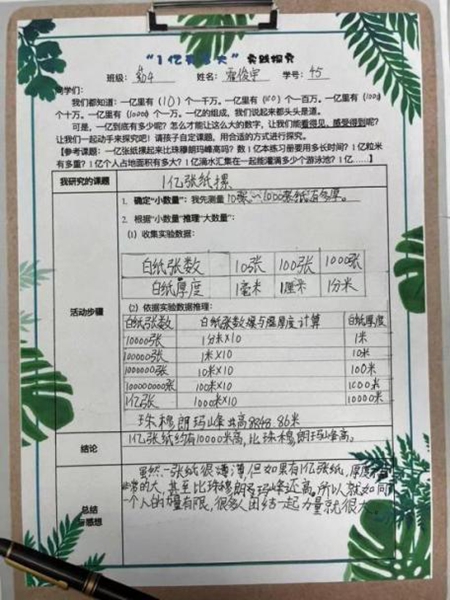 "1亿有多大"实践探究
班级： 姓名： 学号：45
同学们：
我们都知道：一亿里有（10）个一千万。一亿里有（100）个一百万。一亿里有（1000）
个十万。一亿里有（10000）个一万。一亿的组成，我们说起来都头头是道。
可是，一亿到底有多少呢？怎么才能让这么大的数字，让我们能看得见、感受得到呢？
让我们一起动手来探究吧！请孩子自定课题，用合适的方式进行探究。
【参考课题：一亿张纸摞起来比珠穆朗玛峰高吗？数1亿本练习册要用多长时间？1亿粒米
有多重？1亿个人占地面积有多大？1亿滴水汇集在一起能灌满多少个游泳池？1亿……】
我研究的课题 1亿张纸摞
1. 确定"小数量"：我先测量10张～1000张纸有多厚。
2. 根据"小数量"推理"大数量"：
（1）收集实验数据：
白纸张数 10张 100张 1000张
白纸厚度 1毫米 1厘米 1分米
活动步骤
（2）依据实验数据推理：
白纸张数 白纸张数与厚度计算 白纸厚度
10000张 1分米×10 1米
100000张 1米×10 10米
1000000张 10米×10 100米
10000000张 100米×10 1000米
1亿张 1000米×10 10000米
珠穆朗玛峰高8848.86米
结论 1亿张纸约有10000米高，比珠穆朗玛峰高。
虽然一张纸很薄，但如果有1亿张纸，厚度
的大，甚至比珠穆朗玛峰还高。所以就如同
一个人的力量有限，很多人团结一起力量就很大。
总结
与感想